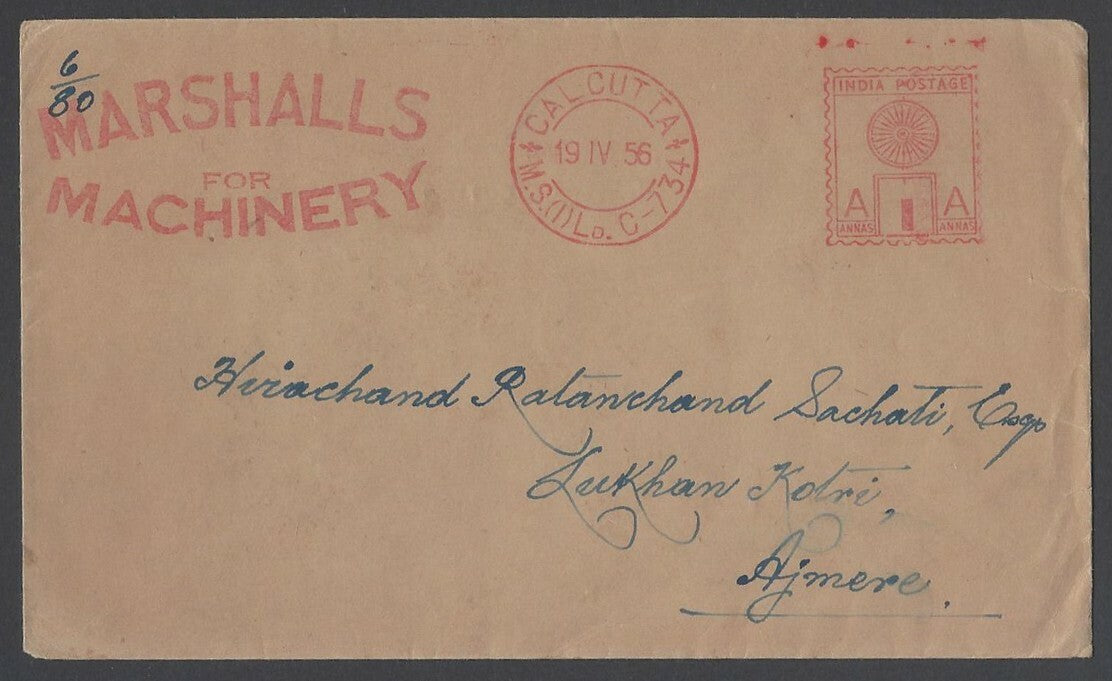 6
80
MARSHALLS
FOR
MACHINERY
CALCUTTA
19 IV 56
M.S.(I) LD. C-734
INDIA POSTAGE
A A
ANNAS ANNAS
Hirachand Ratanchand Sachati, Esqr
Lukhan Kotri,
Ajmere.